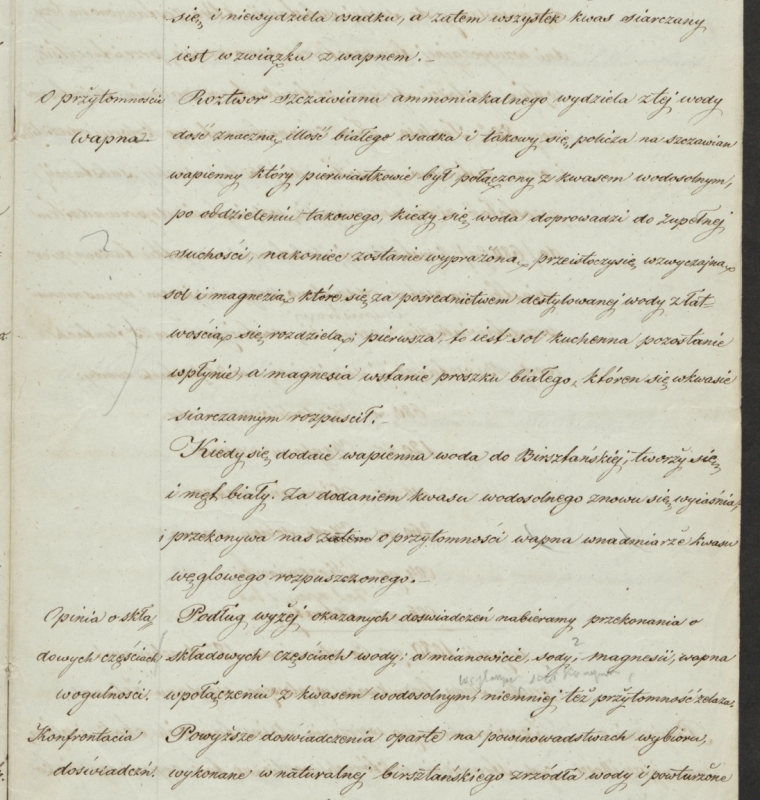 się, i niewydziela osadku, a zatem wszystek kwas siarczany
iest w związku z wapnem. –
O przytomności
wapna.
Roztwor szczawianu ammoniakalnego wydziela z tej wody
dość znaczną illość białego osadka i takowy się policza na szczawian
wapienny który pierwiastkowie był połączony z kwasem wodosolnym,
po oddzieleniu takowego, kiedy się woda doprowadzi do zupełnej
suchości, nakoniec zostanie wyprażona, przeistoczysię wzwyczajną
sol i magnezią, które się za pośrednictwem destylowanej wody z łat-
wością się rozdzielą, i pierwsza, to iest sol kuchenna pozostanie
wpłynie, a magnesia wstanie proszku białego, któren się wkwasie
siarczannym rozpuscił. –
Kiedy się dodaie wapienna woda do Birsztańskiej, tworzy się
i męt biały. Za dodaniem kwasu wodosolnego znowu się wyiaśnia,
i przekonywa nas zatem o przytomności wapna wnadmiarze kwasu
węglowego rozpuszczonego. –
Opinia o skła
dowych częściach
wogulności.
Podług wyżej okazanych doswiadczeń nabieramy przekonania o
składowych częściach wody, a mianowicie, sody, magnesii, wapna
2
wpołączeniu z kwasem wodosolnym, niemniej też przytomność żelaza.
Konfrontacia
doświadczń.
Powyższe doswiadczenia oparte na powinowadstwach wybioru,
wykonane w naturalnej birsztańskiego zrzódła wody i powturzone